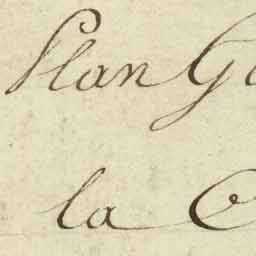 Plan G
la C